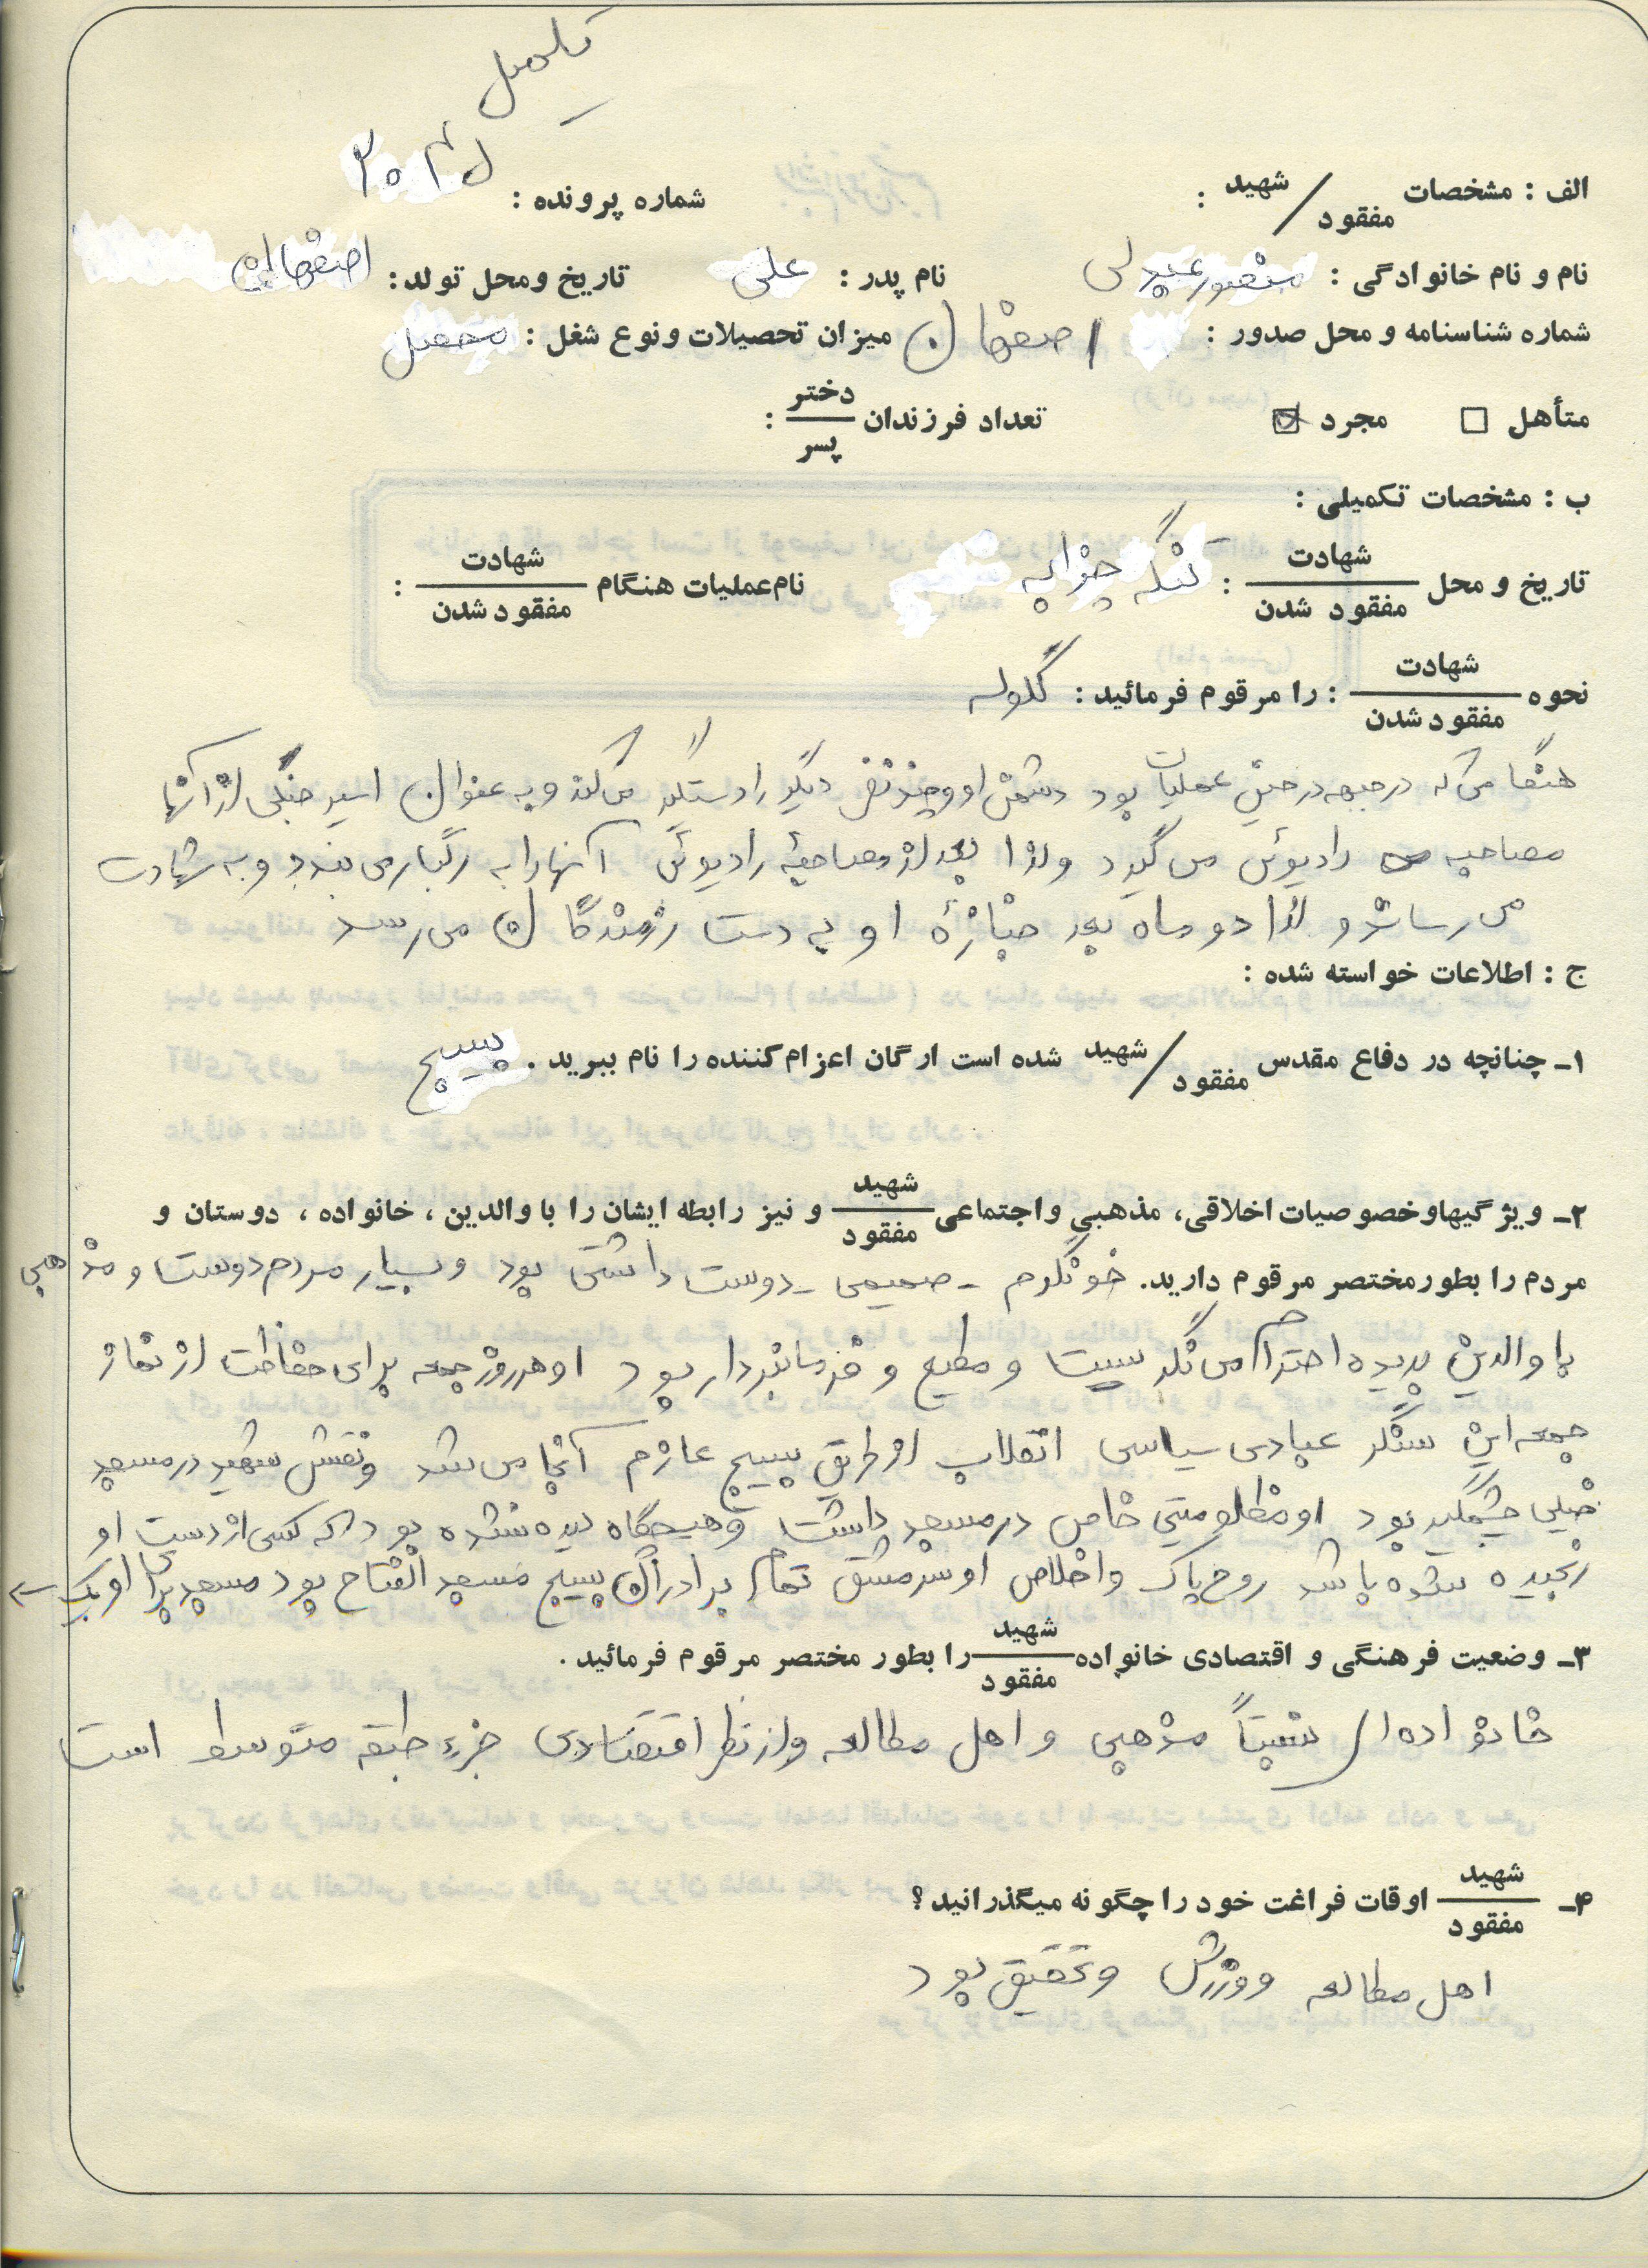 تکمیل
الف : مشخصات شهید / مفقود : شماره پرونده :
نام و نام خانوادگی : منصور عبدلی نام پدر : علی تاریخ و محل تولد : اصفهان
شماره شناسنامه و محل صدور : اصفهان میزان تحصیلات و نوع شغل : محصل
متأهل ☐ مجرد ☑ تعداد فرزندان دختر / پسر :
ب : مشخصات تکمیلی :
تاریخ و محل شهادت / مفقود شدن : تنگه چزابه نام عملیات هنگام شهادت / مفقود شدن :
نحوه شهادت / مفقود شدن : را مرقوم فرمائید : گلوله
هنگامی که در جبهه در حین عملیات بود دشمن او و چند نفر دیگر را دستگیر می کند و به عنوان اسیر جنگی از آنها
مصاحبه رادیوئی می گیرد و لذا بعد از مصاحبهٔ رادیوئی آنها را به رگبار می بندد و به شهادت
می رساند و لذا دو ماه بعد جنازهٔ او به دست رزمندگان می رسد
ج : اطلاعات خواسته شده :
۱ـ چنانچه در دفاع مقدس شهید / مفقود شده است ارگان اعزام کننده را نام ببرید . بسیج
۲ـ ویژگیها و خصوصیات اخلاقی، مذهبی و اجتماعی شهید / مفقود و نیز رابطه ایشان را با والدین ، خانواده ، دوستان و
مردم را بطور مختصر مرقوم دارید. خونگرم ـ صمیمی ـ دوست داشتنی بود و بسیار مردم دوست و مذهبی
با والدین بدیده احترام می نگریست و مطیع و فرمانبردار بود او هر روز جمعه برای حفاظت از نماز
جمعه این سنگر عبادی سیاسی انقلاب از طریق بسیج عازم آنجا می شد و نقش شهید در مسجد
خیلی چشمگیر بود او مظلومیتی خاص در مسجد داشت و هیچگاه دیده نشده بود که کسی از دست او
رنجیده شده باشد روح پاک و اخلاص او سرمشق تمام برادران بسیج مسجد الفتاح بود مسجد برای او یک ←
۳ـ وضعیت فرهنگی و اقتصادی خانواده شهید / مفقود را بطور مختصر مرقوم فرمائید .
خانواده ای نسبتاً مذهبی و اهل مطالعه و از نظر اقتصادی جزء طبقه متوسط است
۴ـ شهید / مفقود اوقات فراغت خود را چگونه میگذرانید ؟
اهل مطالعه و ورزش و تحقیق بود